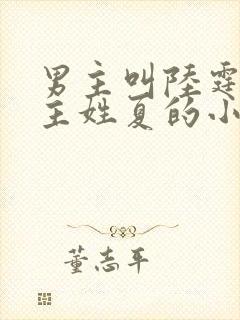 男主叫陸霆
主姓夏的小
董志平